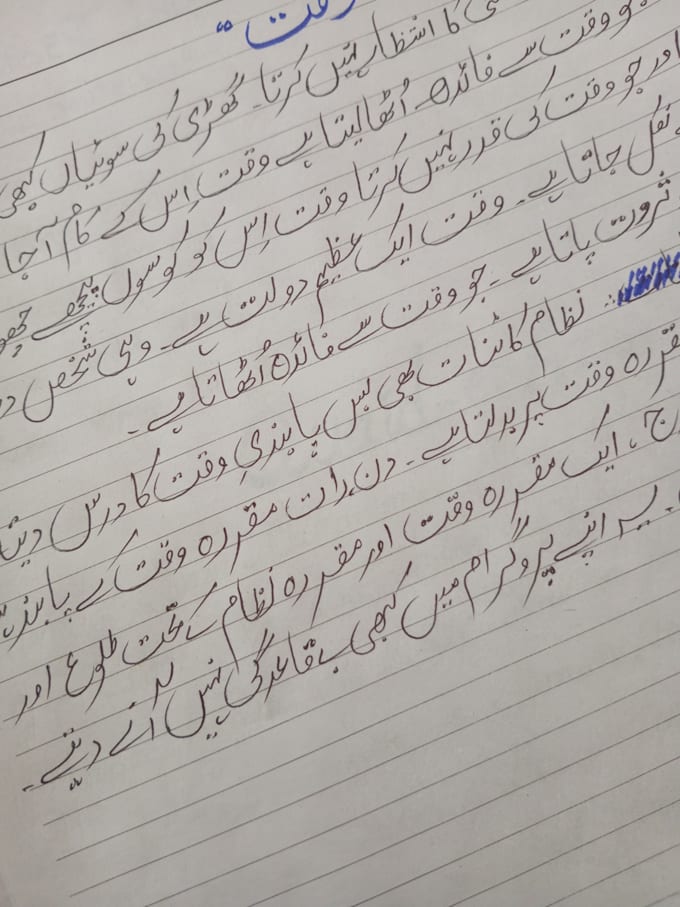 وقت"
کا انتظار نہیں کرتا۔ گھڑی کی سوئیاں کبھی
وقت سے فائدہ اُٹھا لیتا ہے وقت اِس کے کام آ جا
اور جو وقت کی قدر نہیں کرتا وقت اِس کو کوسوں پیچھے چھو
نکل جاتا ہے۔ وقت ایک عظیم دولت ہے۔ وہی شخص د
ثروت پاتا ہے۔ جو وقت سے فائدہ اُٹھاتا ہے۔
نظام کائنات بھی ہمیں پابندیِ وقت کا درس دیتا
مقررہ وقت پر بدلتا ہے۔ دن، رات مقررہ وقت کے پابند
ایک مقررہ وقت اور مقررہ نظام کے تحت طلوع اور
یہ اپنے پروگرام میں کبھی بے قاعدگی نہیں آنے دیتے۔